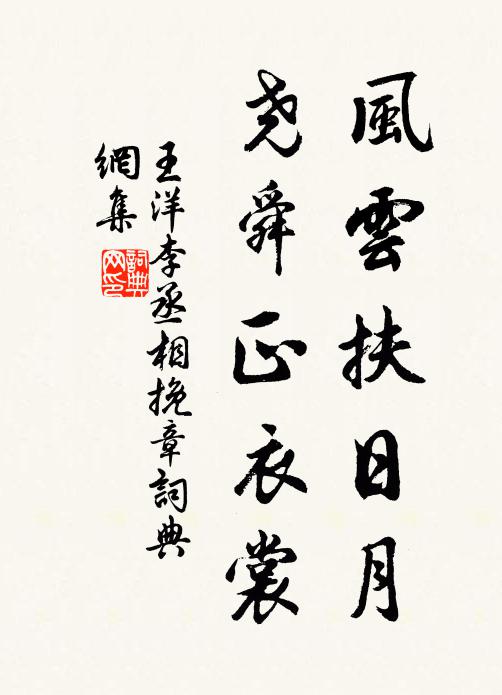 風雲扶日月
堯舜正衣裳
王洋李丞相挽章詞典
網集
詞典
网印